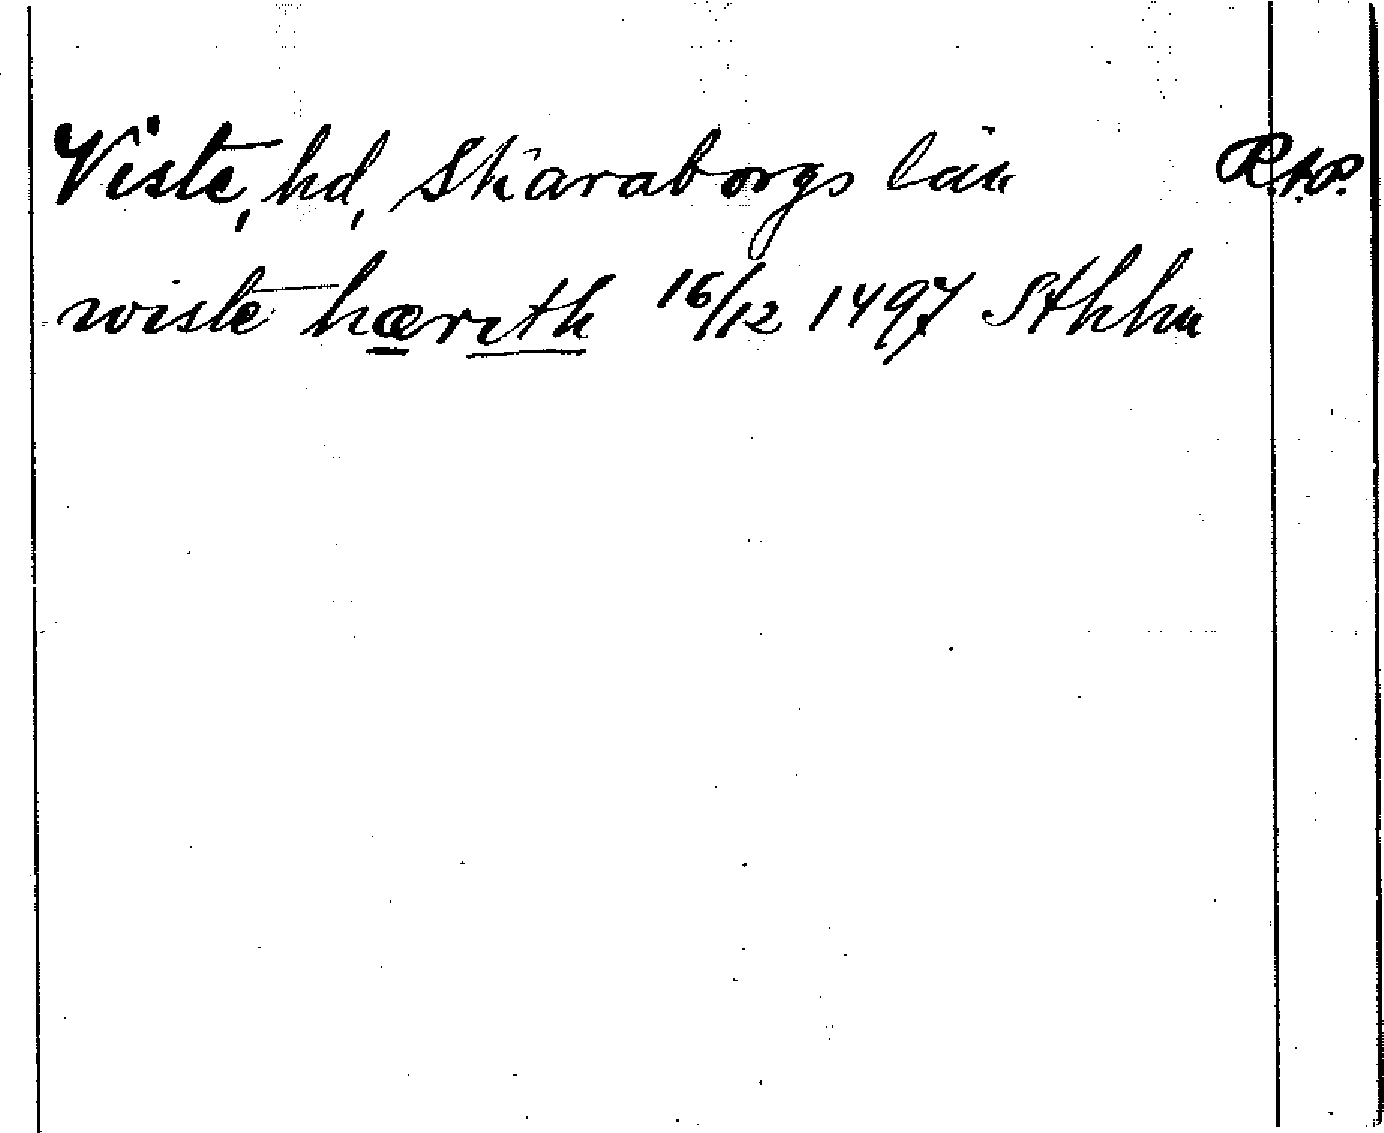 Viste, hd, Skaraborgs län R.A.P.
wiste hærith 16/12 1497 Sthlm